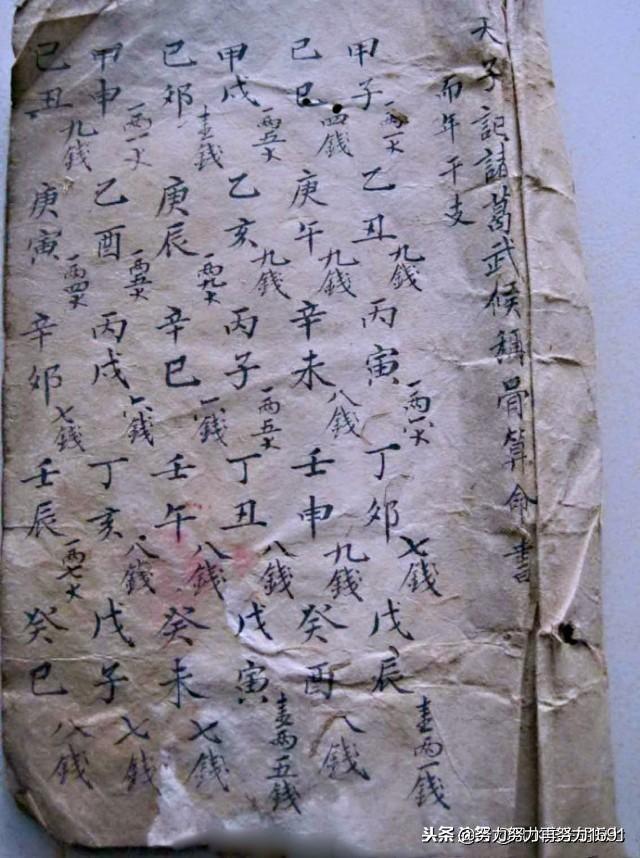 天子記諸葛武候稱骨算命書
而年干支
甲子 一两一大 乙丑 九錢 丙寅 一两八大 丁卯 七錢 戊辰 壹两一錢
己巳 四錢 庚午 九錢 辛未 八錢 壬申 九錢 癸酉 八錢
甲戌 一两五大 乙亥 九錢 丙子 一两五大 丁丑 八錢 戊寅 壹两五錢
己卯 壹錢 庚辰 一两九大 辛巳 錢 壬午 八錢 癸未 七錢
甲申 一两一大 乙酉 一两五大 丙戌 六錢 丁亥 八錢 戊子 七錢
己丑 九錢 庚寅 一两四大 辛卯 七錢 壬辰 一两七大 癸巳 八錢
头条 @努力努力再努力i1591